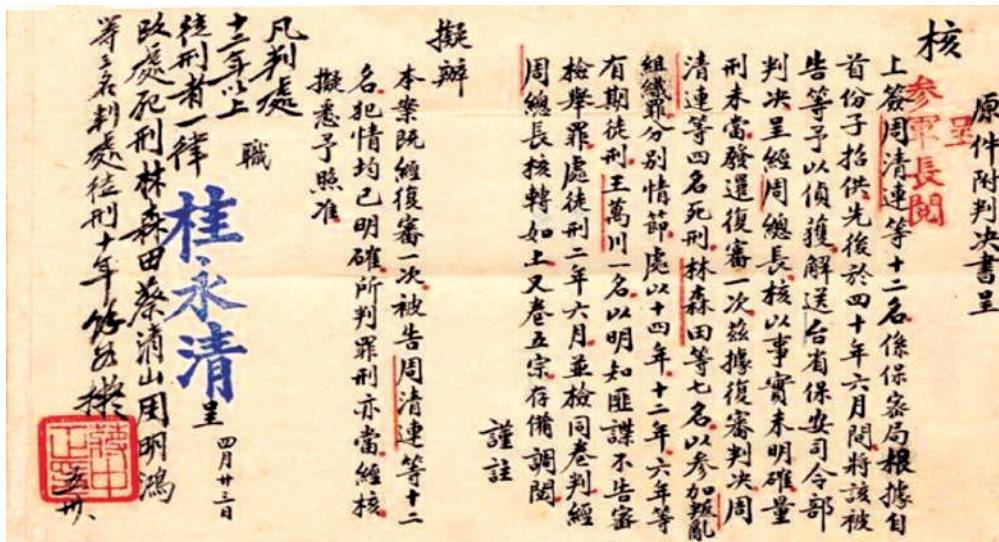 原件附判决書呈
核
呈
参軍長閱
上簽周清連等十二名係保密局根據自
首份子招供先後於四十年六月間將該被
告等予以偵獲解送台省保安司令部
判决呈經周總長核以事實未明確量
刑未當發還復審一次茲據復審判决周
清連等四名死刑林森田等七名以参加叛亂
組織罪分別情節處以十四年十二年六年等
有期徒刑王萬川一名以明知匪諜不告密
檢舉罪處徒刑二年六月並檢同卷判經
周總長核轉如上又卷五宗存備調閱
謹註
擬辦
本案既經復審一次被告周清連等十二
名犯情均已明確所判罪刑亦當經核
擬悉予照准
職
桂永清
呈
四月廿三日
凡判處
十二年以上
徒刑者一律
改處死刑林森田蔡清山周明鴻
等三名判處徒刑十年餘如擬
蔣中正
五卅、